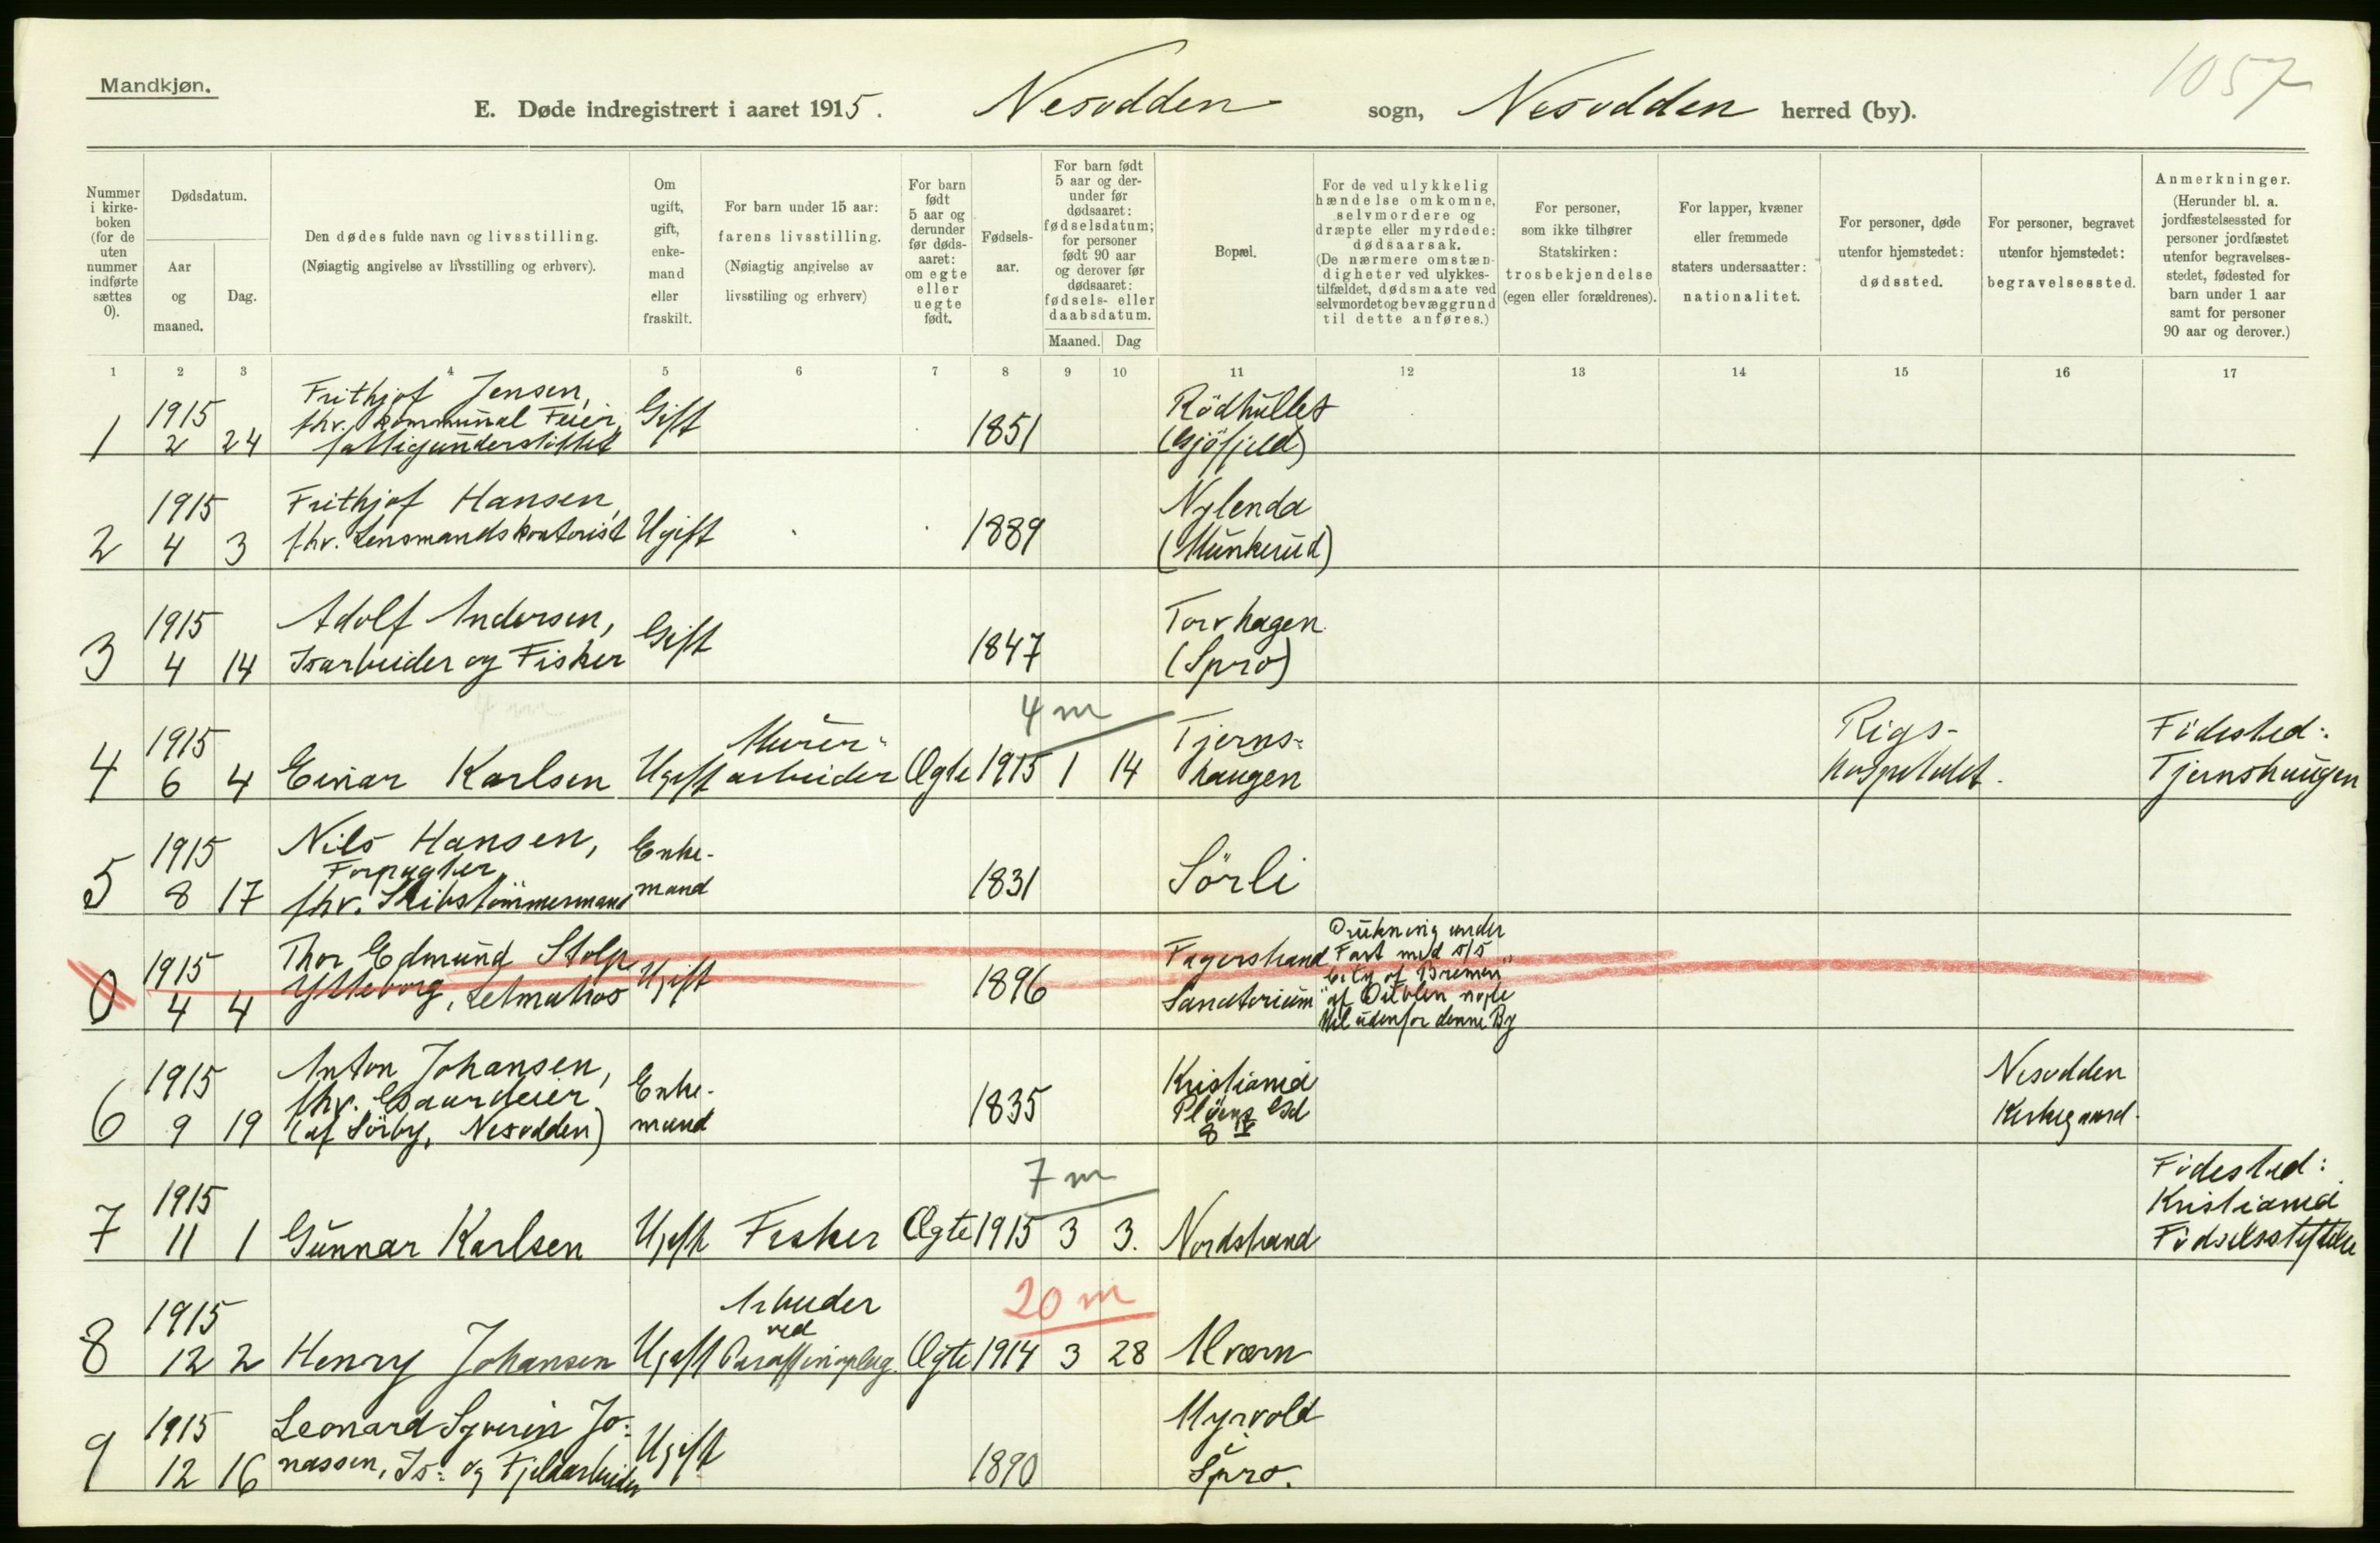 Mandkjøn.
1057
E. Døde indregistrert i aaret 1915. Nesodden sogn, Nesodden herred (by).
Nummer i kirke-boken (for de uten nummer indførte sættes 0).
Dødsdatum.
Aar og maaned.
Dag.
Den dødes fulde navn og livsstilling.
(Nøiagtig angivelse av livsstilling og erhverv).
Om ugift, gift, enke-mand eller fraskilt.
For barn under 15 aar: farens livsstilling. (Nøiagtig angivelse av livsstiling og erhverv)
For barn født 5 aar og derunder før døds-aaret: om egte eller uegte født.
Fødsels-aar.
For barn født 5 aar og der-under før dødsaaret: fødselsdatum; for personer født 90 aar og derover før dødsaaret: fødsels- eller daabsdatum.
Maaned. Dag
Bopæl.
For de ved ulykkelig hændelse omkomne, selvmordere og dræpte eller myrdede: dødsaarsak. (De nærmere omstæn-digheter ved ulykkes-tilfældet, dødsmaate ved selvmordet og bevæggrund til dette anføres.)
For personer, som ikke tilhører Statskirken: trosbekjendelse (egen eller forældrenes).
For lapper, kvæner eller fremmede staters undersaatter: nationalitet.
For personer, døde utenfor hjemstedet: dødssted.
For personer, begravet utenfor hjemstedet: begravelsessted.
Anmerkninger. (Herunder bl. a. jordfæstelsessted for personer jordfæstet utenfor begravelses-stedet, fødested for barn under 1 aar samt for personer 90 aar og derover.)
1 2 3 4 5 6 7 8 9 10 11 12 13 14 15 16 17
1 1915 2 24 Frithjof Jensen, fhv. kommunal Feier, fattigunderstöttet Gift 1851 Rödhullet (Gjöfjeld)
2 1915 4 3 Frithjof Hansen, fhv. Lensmandskontorist Ugift 1889 Nylenda (Munkerud)
3 1915 4 14 Adolf Andersen, Isarbeider og Fisker Gift 1847 Torvhagen (Spro)
4 m
4 1915 6 4 Einar Karlsen Ugift Murer-arbeider Ægte 1915 1 14 Tjerns-haugen Rigs-hospitalet. Födested: Tjernshaugen
5 1915 8 17 Nils Hansen, Forpagter, fhv. Skibstömmermand Enke-mand 1831 Sörli
0 1915 4 4 Thor Edmund Stolp Ytteborg, Letmatros Ugift 1896 Fagerstrand Sanatorium Drukning under Fart med S/S "City of Bremen" af Dublin nogle Mil udenfor denne By
6 1915 9 19 Anton Johansen, fhv. Gaardeier (af Sörby, Nesodden) Enke-mand 1835 Kristiania Plöens Gd 8 V Nesodden Kirkegaard.
7 m
7 1915 11 1 Gunnar Karlsen Ugift Fisker Ægte 1915 3 3. Nordstrand Födested: Kristiania Födselsstiftelse
20 m
8 1915 12 2 Henry Johansen Ugift Arbeider ved Paraffinoplag Ægte 1914 3 28 Alværn
9 1915 12 16 Leonard Syverin Jo-nassen, Is- og Fjeldarbeider Ugift 1890 Myrvold Spro.